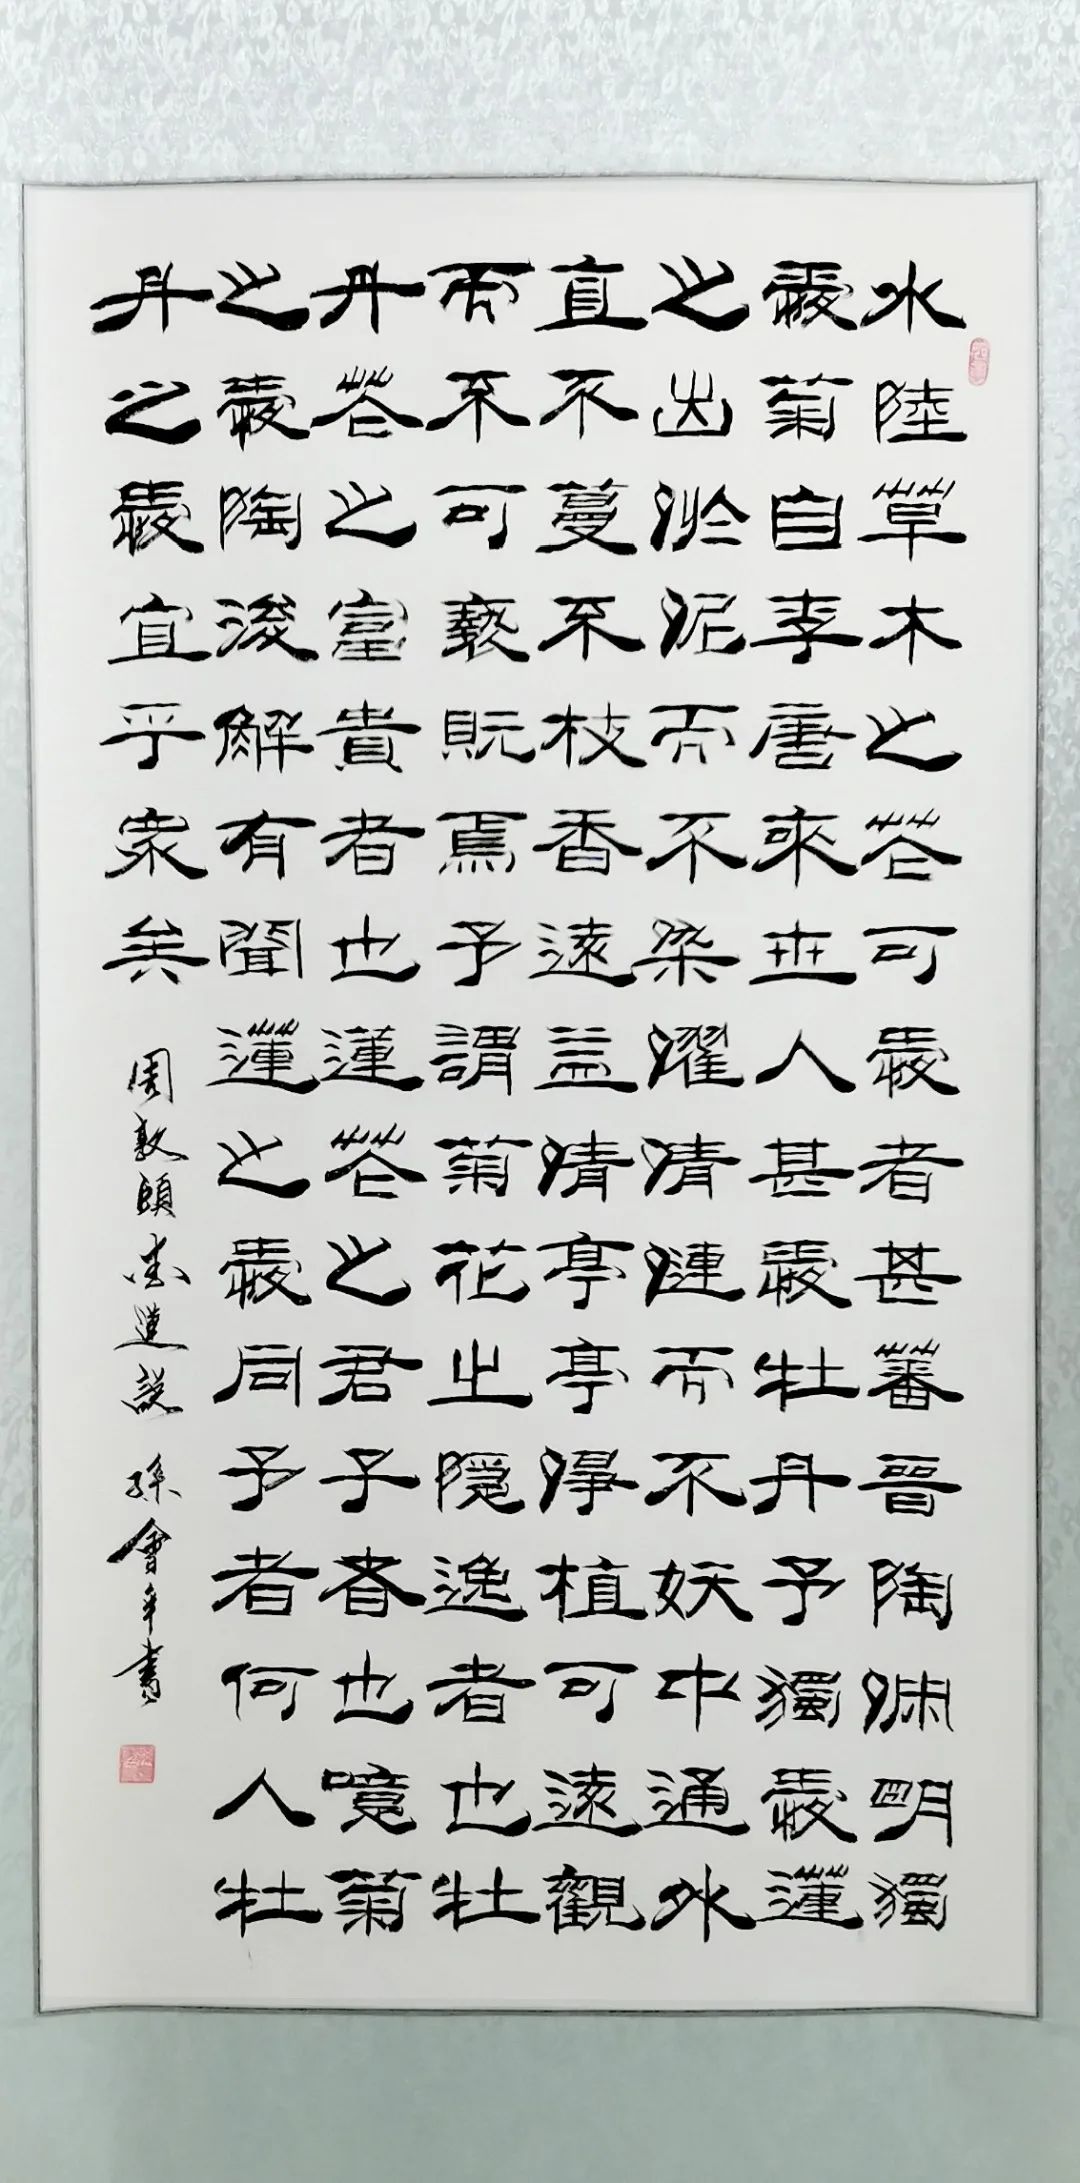 水陸草木之花可愛者甚蕃晉陶淵明獨
愛菊自李唐來世人甚愛牡丹予獨愛蓮
之出淤泥而不染濯清漣而不妖中通外
直不蔓不枝香遠益清亭亭淨植可遠觀
而不可褻貦焉予謂菊花之隱逸者也牡
丹花之富貴者也蓮花之君子者也噫菊
之愛陶後鮮有聞蓮之愛同予者何人牡
丹之愛宜乎眾矣 周敦頤愛蓮說 孫會書